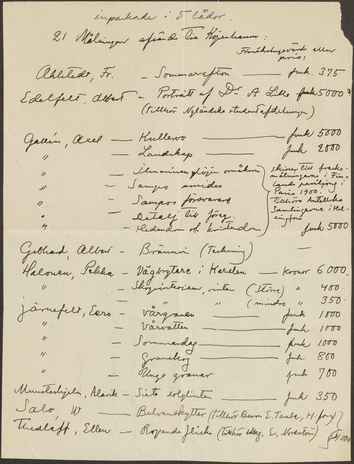 inpackade i 5 lådor.
21 Målningar afsända via Köpenhamn:
Försäkringsvärde eller pris:
Ahlstedt, Fr. – Sommarafton — fmk 375
Edelfelt, Albert – Porträtt af Dr. A. — fmk 5000
(Tillhör Nyländska studentafdelningen)
Gallén, Axel — Kullervo — fmk 5000
" — Landskap — fmk 2000
" — Ilmarinen plöjer ormåkern
" — Sampos smides
" — Sampos försvarar
" — Detalj till förg.
" — Hedendom och kristendom fmk 5000
skizzer till freskomålningarne i Finlands paviljong i Paris 1900. Tillhöra Antellska Samlingarne i Helsingfors
Gebhard, Albert – Brännvin (Teckning) —
Halonen, Pekka – Vägbrytare i Karelen — Kronor 6000.
" — Skogsinteriör, vinter (större) " 400
" — " (mindre) " 350.
Järnefelt, Eero – Vårgranar — fmk 1000
" — Vårvatten — fmk 1000
" — Sommardag — fmk 1000
" — Granskog — fmk 800
" — Unga granar — fmk 700
Munsterhjelm, Alarik – Sista solglimten — fmk 350
Salo, W — (Tillhör
Thesleff, Ellen — flicka (Tillhör